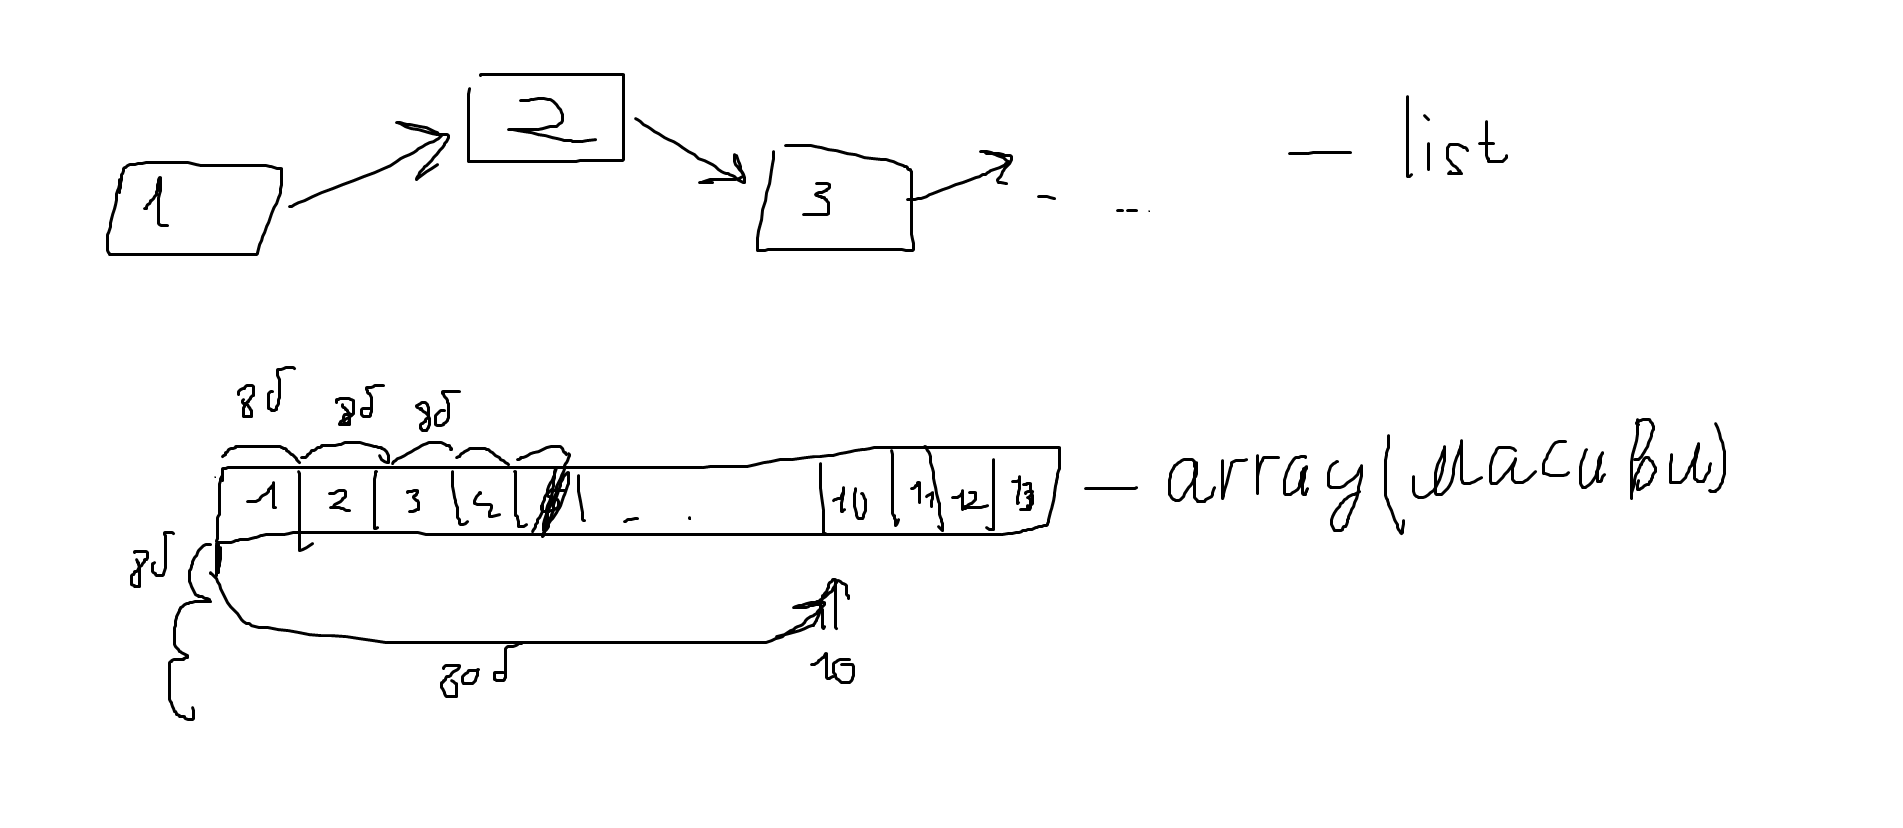 1 2 3 - ... - list
8б 8б 8б
1 2 3 4 - . 10 11 12 13 - array (масиви)
8б
80б 10